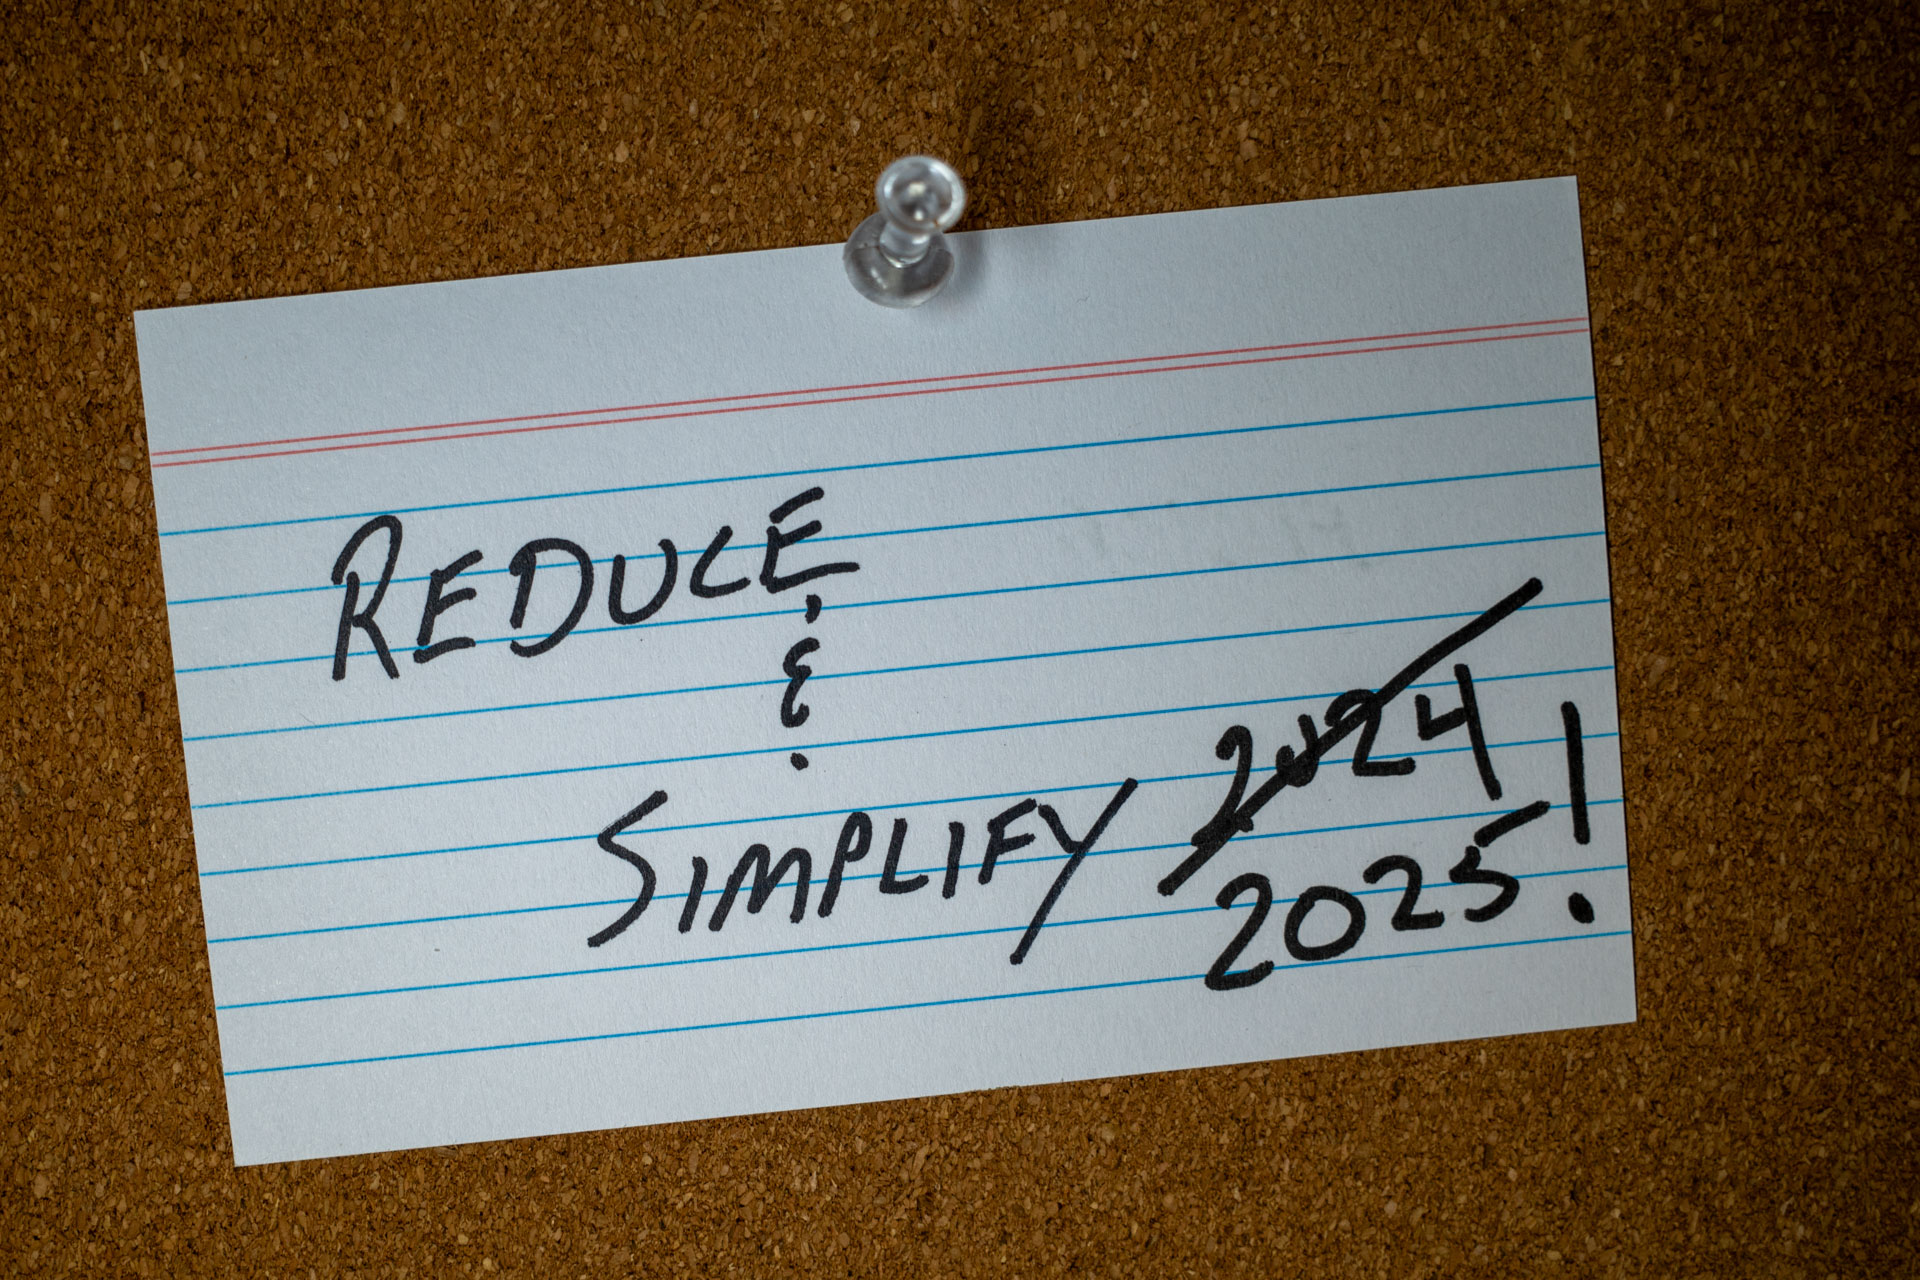 REDUCE
&
SIMPLIFY 2024
2025!